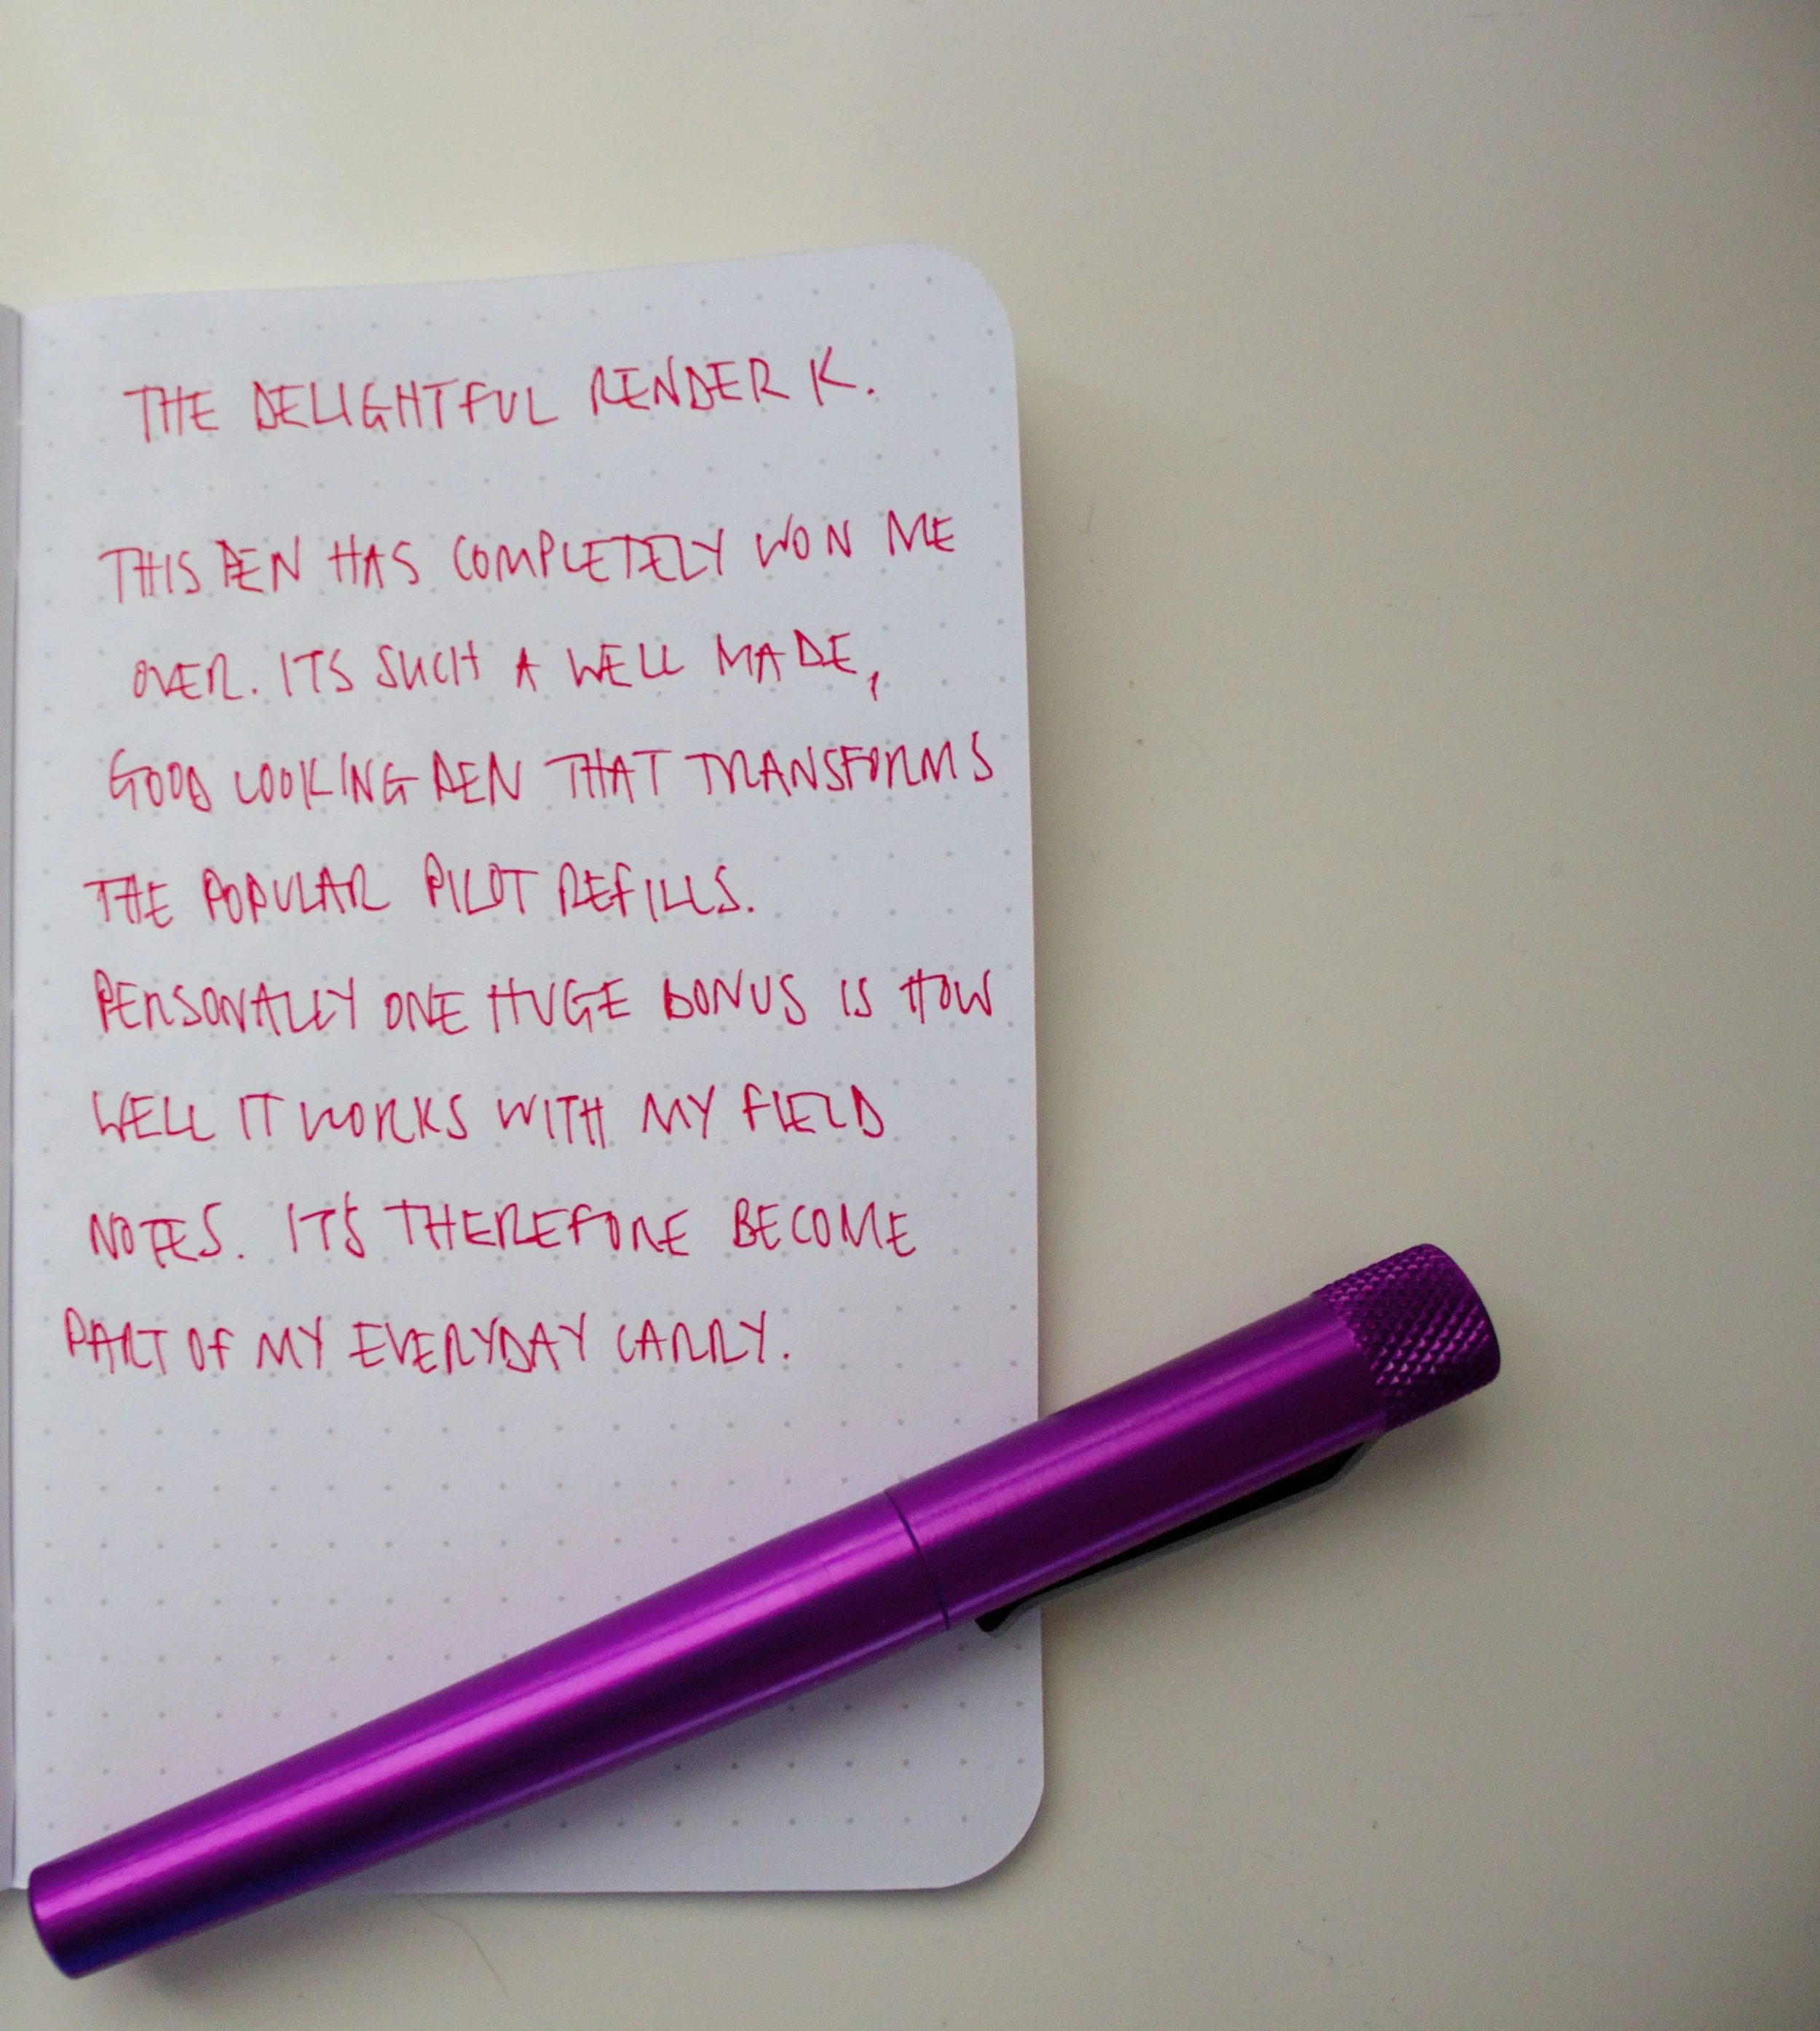 THE DELIGHTFUL RENDER K.
THIS PEN HAS COMPLETELY WON ME
OVER. ITS SUCH A WELL MADE,
GOOD LOOKING PEN THAT TRANSFORMS
THE POPULAR PILOT REFILLS.
PERSONALLY ONE HUGE BONUS IS HOW
WELL IT WORKS WITH MY FIELD
NOTES. IT'S THEREFORE BECOME
PART OF MY EVERYDAY CARRY.